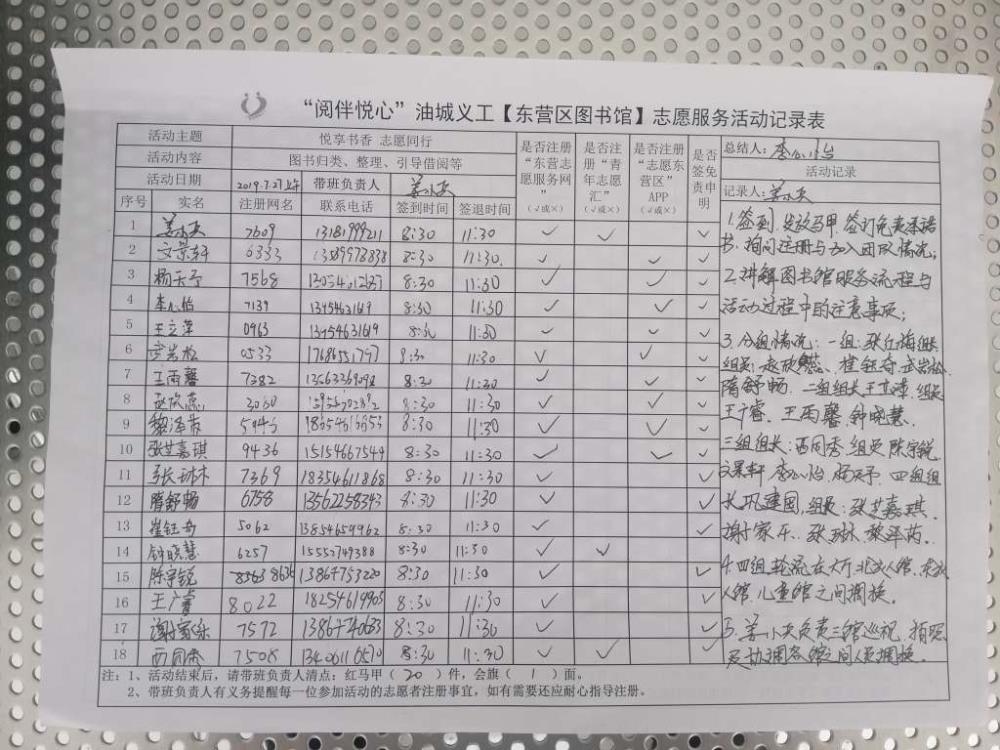 “阅伴悦心”油城义工【东营区图书馆】志愿服务活动记录表
活动主题 悦享书香 志愿同行
活动内容 图书归类、整理、引导借阅等
活动日期 2019.7.27上午 带班负责人 姜小夾
序号 实名 注册网名 联系电话 签到时间 签退时间 是否注册“东营志愿服务网”（√或×） 是否注册“青年志愿汇”（√或×） 是否注册“志愿东营区”APP（√或×） 是否签免责申明
1 7609 13181999211 8:30 11:30 ✓ ✓ ✓
2 文景轩 6333 8:30 11:30. ✓ ✓ ✓
3 杨天予 7568 8:30 11:30 ✓ ✓ ✓
4 李心怡 7139 13454631619 8:30 11:30 ✓ ✓ ✓
5 王立萍 0963 13454631619 8:30 11:30 ✓ ✓ ✓
6 武岩松 0533 17686551797 8:30 11:30 ✓ ✓ ✓
7 王雨馨 7382 13563369098 8:30 11:30 ✓ ✓ ✓
8 赵欣蕊 3060 8:30 11:30 ✓ ✓ ✓
9 黎泽芮 5945 18654616653 8:30 11:30 ✓ ✓ ✓
10 张艾嘉琪 9436 15154667549 8:30 11:30 ✓ ✓ ✓
11 张琳木 7369 18354611868 8:30 11:30 ✓ ✓
12 隋舒畅 6758 13562258343 8:30 11:30 ✓ ✓
13 崔钰奇 5062 13854659962 8:30 11:30 ✓ ✓
14 钟晓慧 6257 15552749388 8:30 11:30 ✓ ✓
15 陈宇锐 8636 13864753220 8:30 11:30 ✓ ✓
16 王广睿 8022 18254619903 8:30 11:30 ✓ ✓
17 谢家乐 7572 13864740633 8:30 11:30 ✓ ✓
18 西同秀 7508 13406116570 8:30 11:30 ✓ ✓ ✓
总结人：李心怡
活动记录
记录人：
1.签到，发放马甲，签订免责承诺
书，询问注册与加入团队情况；
2.讲解图书馆服务流程与
活动过程中的注意事项；
3.分组情况：一组：组长
组员：赵欣蕊、崔钰奇、武岩松
隋舒畅. 二组组长王立萍，组员
王广睿、王雨馨、钟晓慧.
三组组长：西同秀，组员陈宇锐
文景轩、李心怡、杨天予. 四组组
长巩建国，组员：张艾嘉琪.
谢家乐、张琳木、黎泽芮.
4.四组轮流在大厅、成
人馆、儿童馆之间调换.
5.负责三馆巡视、拍照
及协调各馆之间人员调换.
注：1、活动结束后，请带班负责人清点：红马甲（ 20 ）件，会旗（ 1 ）面。
2、带班负责人有义务提醒每一位参加活动的志愿者注册事宜，如有需要还应耐心指导注册。